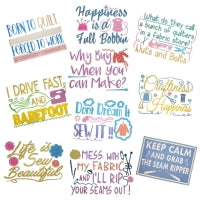 BORN TO QUILT
FORCED TO WORK
Happiness
is a
Full Bobbin
What do they call
a bunch of quilters
in a Fabric Store?
Nuts and Bolts
I DRIVE FAST
AND
BAREFOOT
Why Buy
When You
can Make?
Don't Dream It
SEW IT!!
Craftiness
is
Happiness
Life is
Sew
Beautiful
MESS WITH
MY FABRIC
and I'LL RIP
YOUR SEAMS OUT!
KEEP CALM
AND GRAB
THE SEAM RIPPER